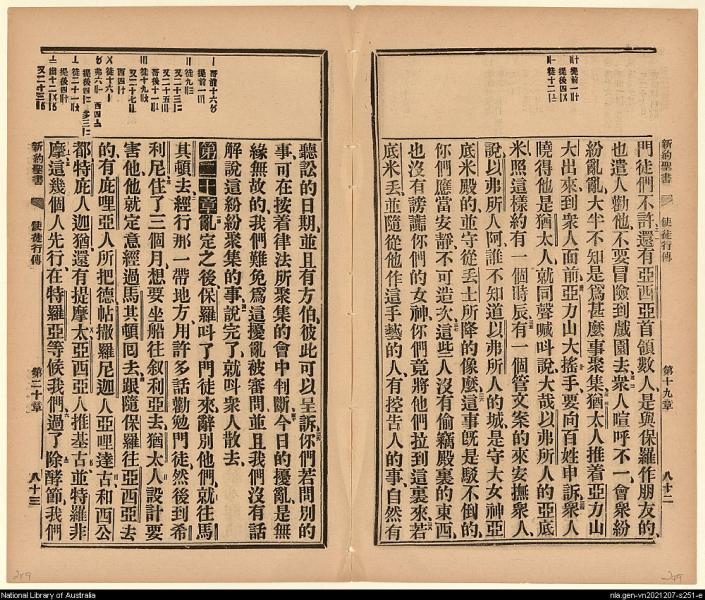 新約聖書 使徒行傳 第十九章 八十二
門徒們不許、還有亞西亞首領數人、是與保羅作朋友的、
也遣人勸他不要冒險到戲園去、衆人喧呼不一、會衆紛
紛亂亂、大半不知是爲甚麼事聚集、猶太人推着亞力山
大出來到衆人面前、亞力山大搖手、要向百姓申訴、衆人
曉得他是猶太人、就同聲喊呌說、大哉以弗所人的亞底
米、照這樣約有一個時辰、有一個管文案的來安撫衆人、
說、以弗所人阿、誰不知道以弗所人的城、是守大女神亞
底米殿的、並守從丟士所降的像麼、這事旣是駁不倒的、
你們應當安靜、不可造次、這些人沒有偷竊殿裏的東西、
也沒有謗讟你們的女神、你們竟將他們拉到這裏來、若
底米丟並隨從他作這手藝的人、有控告人的事、自然有
聽訟的日期、並且有方伯、彼此可以呈訴、你們若問別的
事、可在按着律法所聚集的會中判斷、今日的擾亂、是無
緣無故的、我們難免爲這擾亂被審問、並且我們沒有話
解說這紛紛聚集的事、說完了、就呌衆人散去、
第二十章 亂定之後、保羅呌了門徒來、辭別他們、就往馬
其頓去、經行那一帶地方、用許多話勸勉門徒、然後到希
利尼、住了三個月、想要坐船往叙利亞去、猶太人設計要
害他、他就定意經過馬其頓囘去、跟隨保羅往亞西亞去
的、有庇哩亞人所把德、帖撒羅尼迦人亞哩達古和西公
都、特庇人迦猶、還有提摩太、亞西亞人推基古並特羅非
摩、這幾個人先行、在特羅亞等候我們、過了除酵節、我們
新約聖書 使徒行傳 第二十章 八十三
National Library of Australia
nla.gen-vn2021207-s251-e